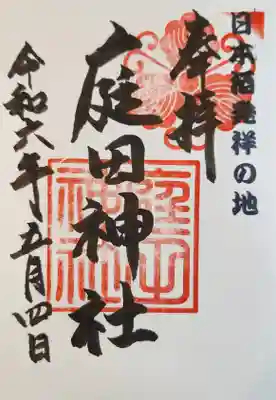 日本酒発祥の地
奉拝
庭田神社
庭田神社
令和六年五月四日